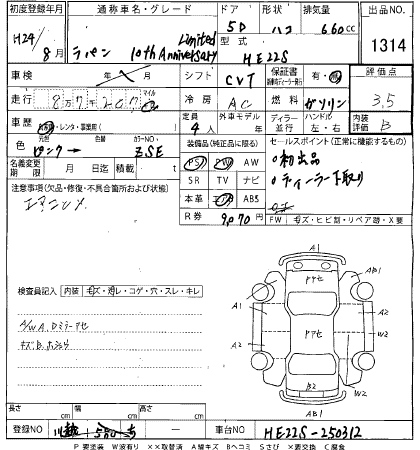 初度登録年月 通称車名・グレード ドア 形状 排気量 出品NO.
H24/8月 ラパン 10th Anniversary Limited 5D ハコ 660cc 1314
型式 HE22S
車検 年 月 シフト CVT 保証書 有・無 評価点
走行 8万7千207 マイル Km 冷房 AC 燃料 ガソリン 3.5
車歴 自家用・レンタ・事業用( ) 定員 4人 外車モデル 年 ディーラー 並行 ハンドル 左・右 内装評価 B
色 ピンク → 色替 カラーNO. ZSE 装備品(純正品に限る) セールスポイント(正常に機能するもの)
PS PW AW ○初出品
名義変更期限 月 日 積載 t SR TV ナビ ○ディーラー下取り
注意事項(欠品・修復・不具合箇所および状態) 本革 エアB ABS
R券 9,070 FW キズ・ヒビ割・リペア跡・X要
検査員記入 内装 キズ・スレ・コゲ・穴・スレ・キレ
A/W A. Dミラーアセ
A1 A1 A2 AB1 A1 A2 W2 B2 AB1
長さ cm 幅 cm 高さ cm
登録NO 川越 580 ち — 車台NO HE22S-250312
P 要塗装 W波有り ××取替済 A線キズ Bヘコミ Sさび ×要交換 C腐食